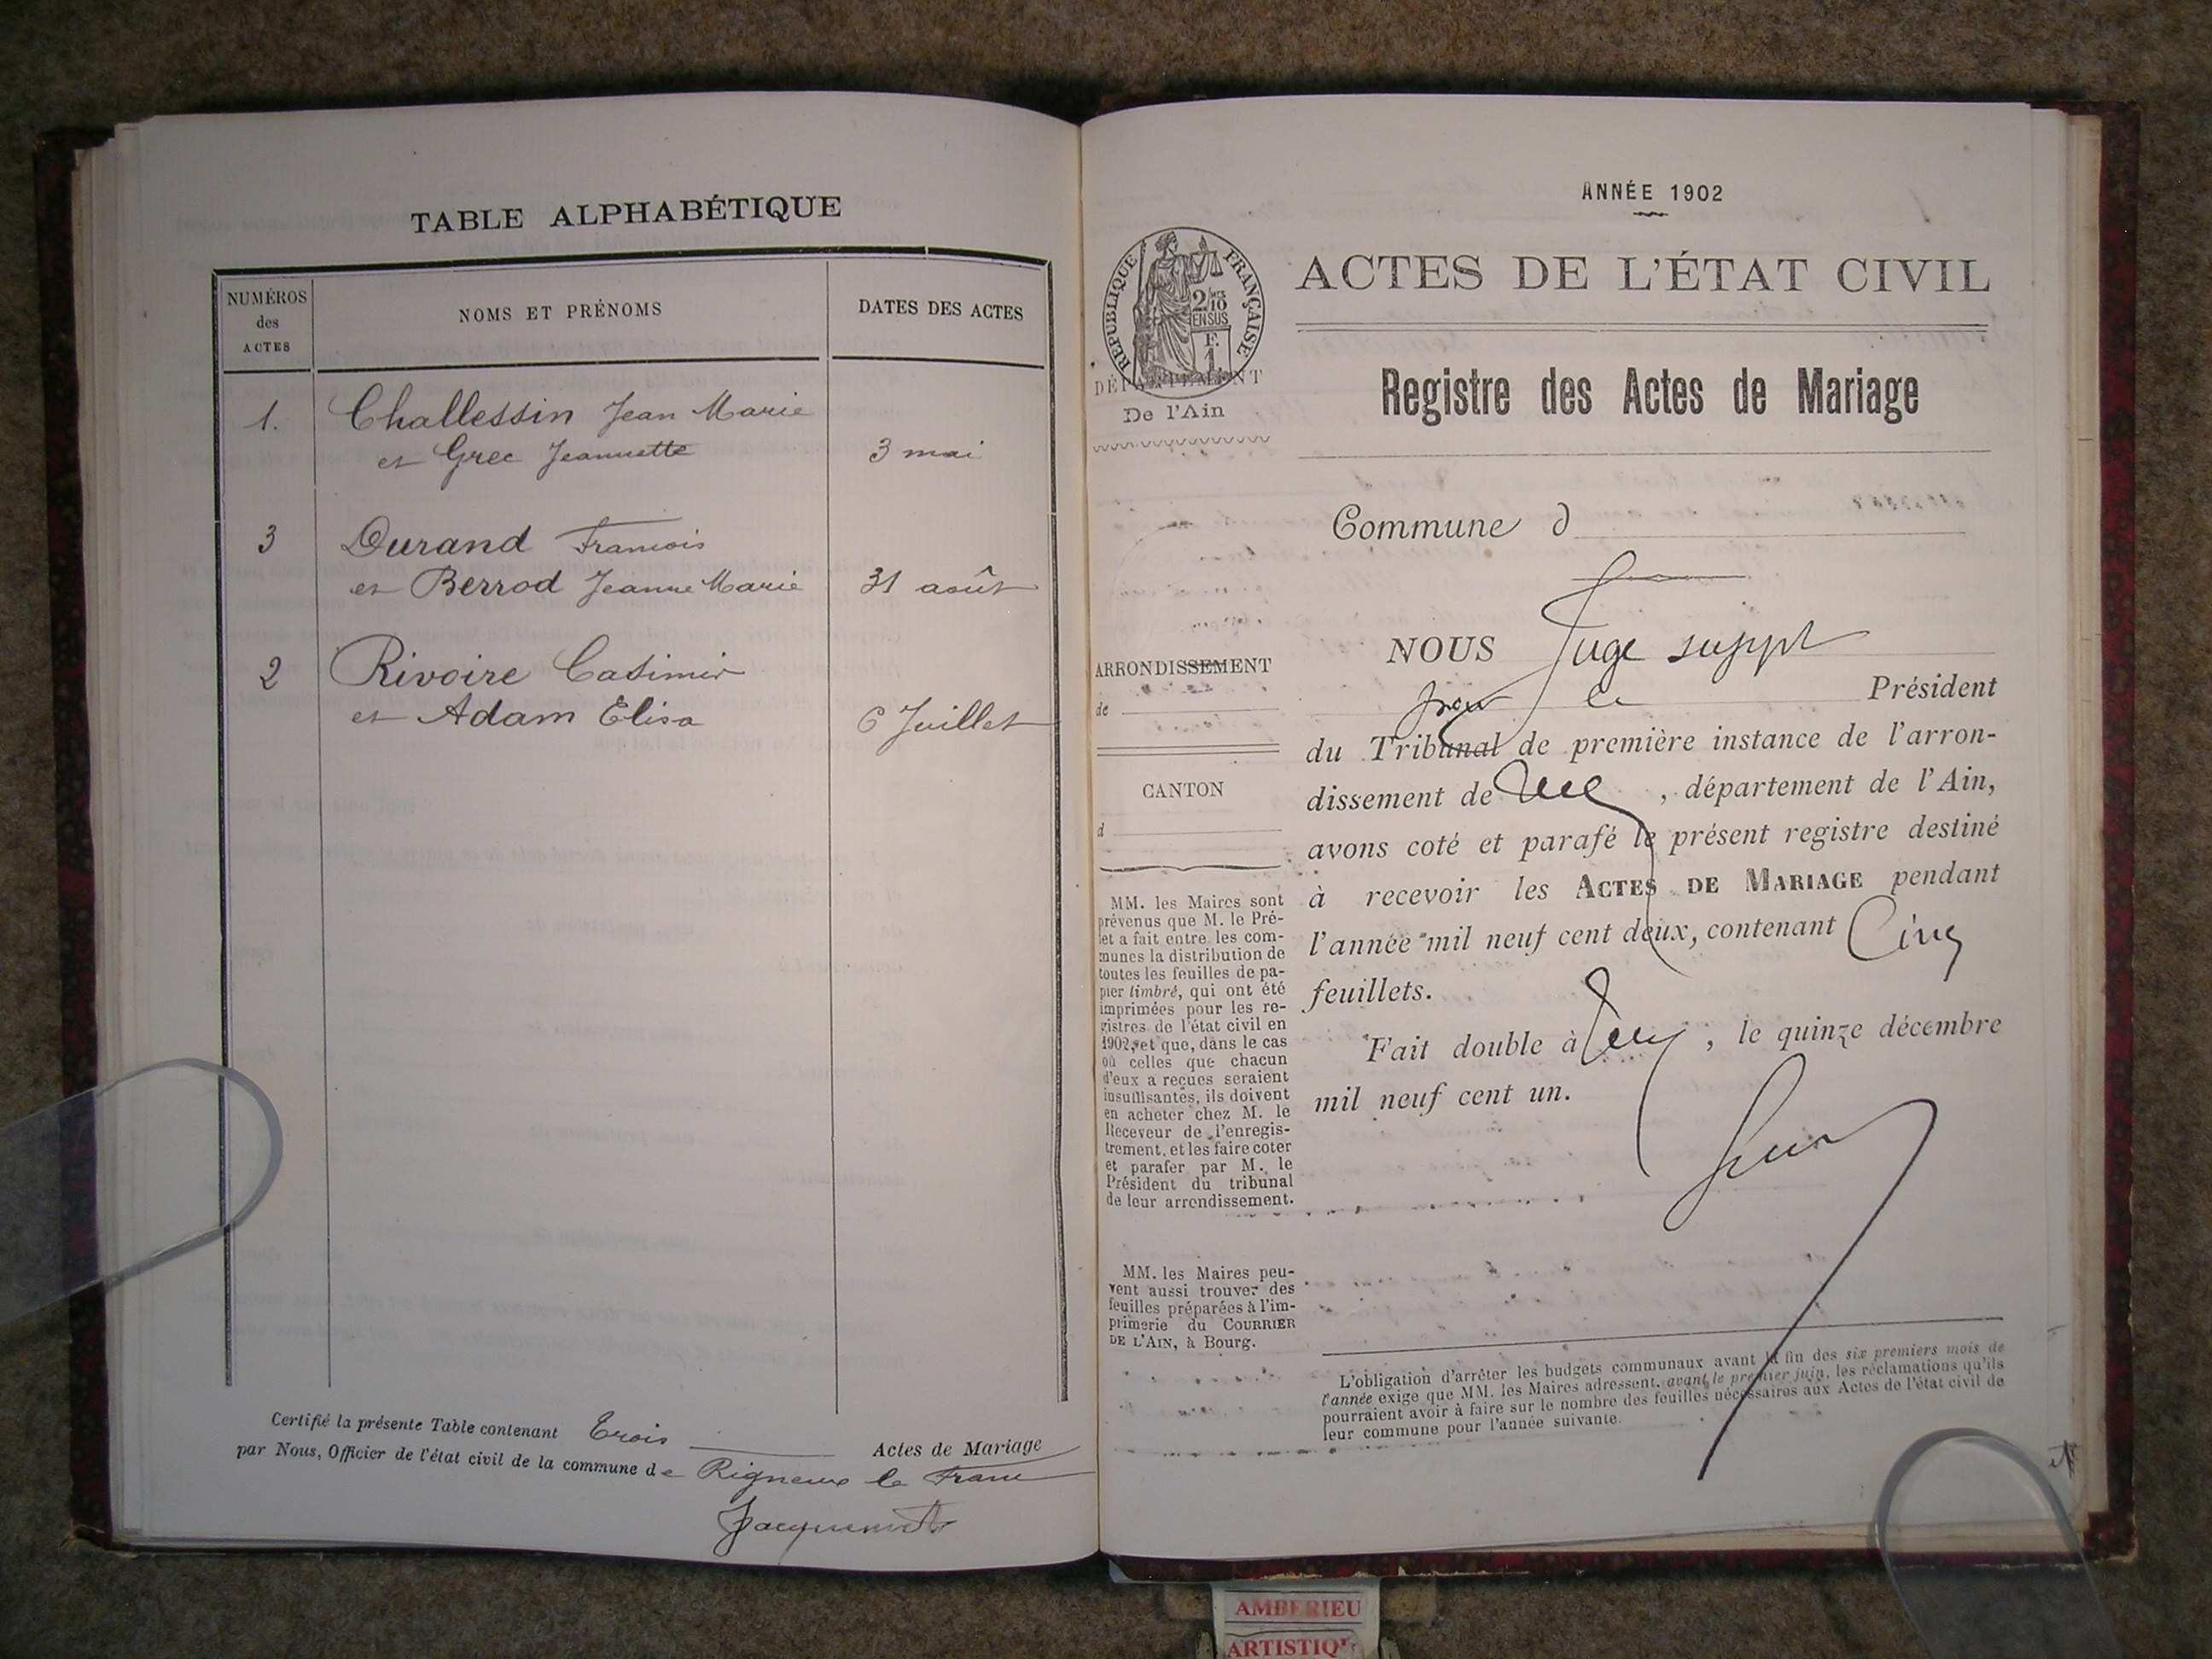 TABLE ALPHABÉTIQUE
NUMÉROS
des
ACTES
NOMS ET PRÉNOMS
DATES DES ACTES
1. Challessin Jean Marie
et Grec Jeannette 3 mai
3 Durand François
et Berrod Jeanne Marie 31 août
2 Rivoire Casimir
et Adam Elisa 6 Juillet
Certifié la présente Table contenant Trois Actes de Mariage
par Nous, Officier de l'état civil de la commune de Rigneux le Franc
Jacquemet
ANNÉE 1902
ACTES DE L'ÉTAT CIVIL
Registre des Actes de Mariage
RÉPUBLIQUE FRANÇAISE
2/10
EN SUS
F.
1
DÉPARTEMENT
De l'Ain
Commune d
NOUS Juge suppt
pour le Président
du Tribunal de première instance de l'arron-
dissement de , département de l'Ain,
avons coté et parafé le présent registre destiné
à recevoir les ACTES DE MARIAGE pendant
l'année mil neuf cent deux, contenant Cinq
feuillets.
Fait double à , le quinze décembre
mil neuf cent un.
ARRONDISSEMENT
de
CANTON
d
MM. les Maires sont
prévenus que M. le Pré-
fet a fait entre les com-
munes la distribution de
toutes les feuilles de pa-
pier timbré, qui ont été
imprimées pour les re-
gistres de l'état civil en
1902, et que, dans le cas
où celles que chacun
d'eux a reçues seraient
insuffisantes, ils doivent
en acheter chez M. le
Receveur de l'enregis-
trement, et les faire coter
et parafer par M. le
Président du tribunal
de leur arrondissement.
MM. les Maires peu-
vent aussi trouver des
feuilles préparées à l'im-
primerie du COURRIER
DE L'AIN, à Bourg.
L'obligation d'arrêter les budgets communaux avant la fin des six premiers mois de
l'année exige que MM. les Maires adressent, avant le premier juin, les réclamations qu'ils
pourraient avoir à faire sur le nombre des feuilles nécessaires aux Actes de l'état civil de
leur commune pour l'année suivante.
AMBERIEU
ARTISTIQ